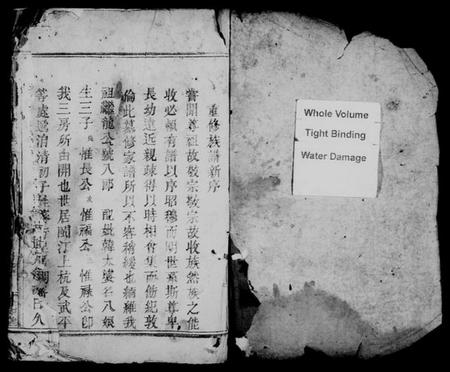 重修族譜新序
嘗聞尊祖故敬宗敬宗故收族然族之能
收必賴有譜以序昭穆而明世系斯尊卑
長幼遠近親疎得以時相會集而飭紀敦
倫此纂修家譜所以不容稍緩也緬維我
祖繼龍公號八郎 龍妣韓太婆谷八娘
生三子 長惟長公 次惟福公 惟祿公即
我三房所由開也世居閩汀上杭及武平
等處迨治清初子姓
Whole Volume
Tight Binding
Water Damage